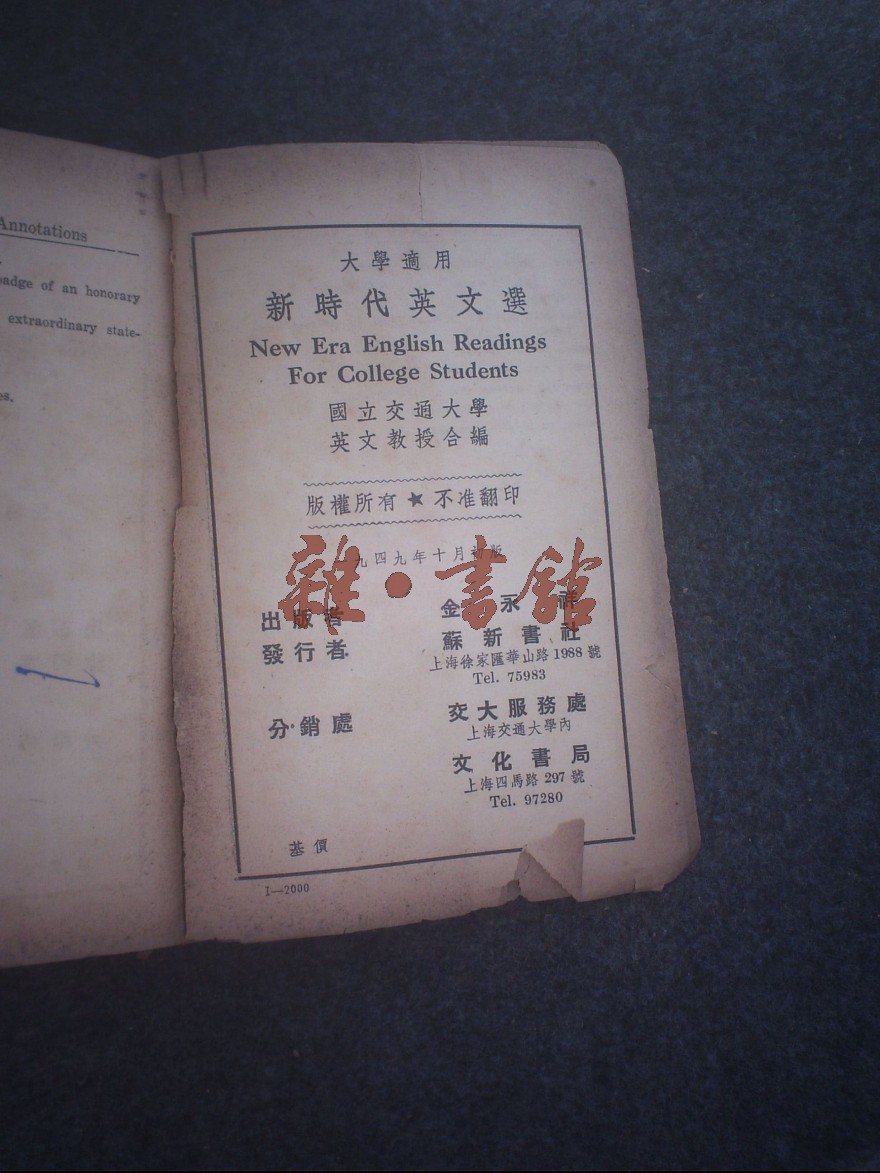 Annotations
badge of an honorary
extraordinary state-
es.
大學適用
新時代英文選
New Era English Readings
For College Students
國立交通大學
英文教授合編
版權所有★不准翻印
一九四九年十月初版
雜·書館
出版者 金永祥
發行者 蘇新書社
上海徐家匯華山路 1988 號
Tel. 75983
分銷處 交大服務處
上海交通大學內
文化書局
上海四馬路 297 號
Tel. 97280
基價
I—2000